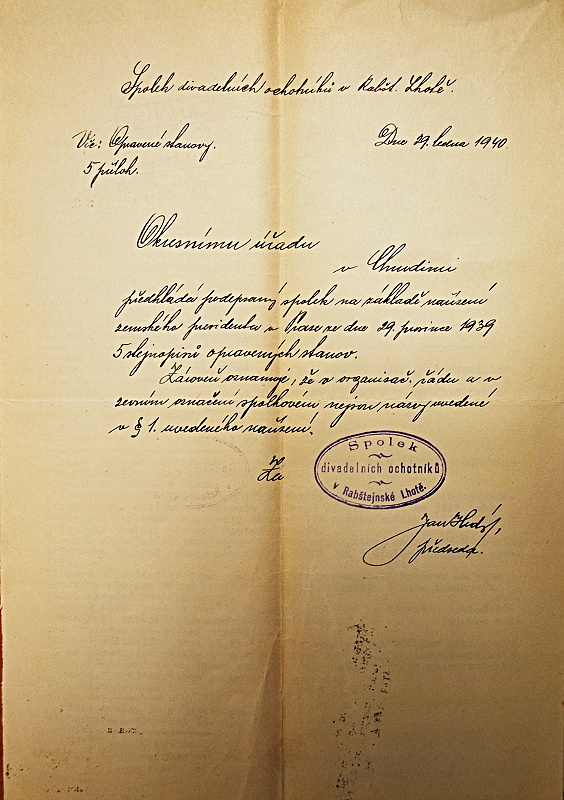 Spolek divadelních ochotníků v Rabšt. Lhotě.
Věc: Opravené stanovy.
Dne 29. ledna 1940.
5 příloh.
Okresnímu úřadu
v Chrudimi
předkládá podepsaný spolek na základě nařízení
zemského presidenta v Praze ze dne 29. prosince 1939
5 stejnopisů opravených stanov.
Zároveň oznamuje, že v organisač. řádu a v
zevním označení spolkovém nejsou názvy uvedené
v § 1. uvedeného nařízení.
Za
Spolek
divadelních ochotníků
v Rabštejnské Lhotě.
Jan
předseda.